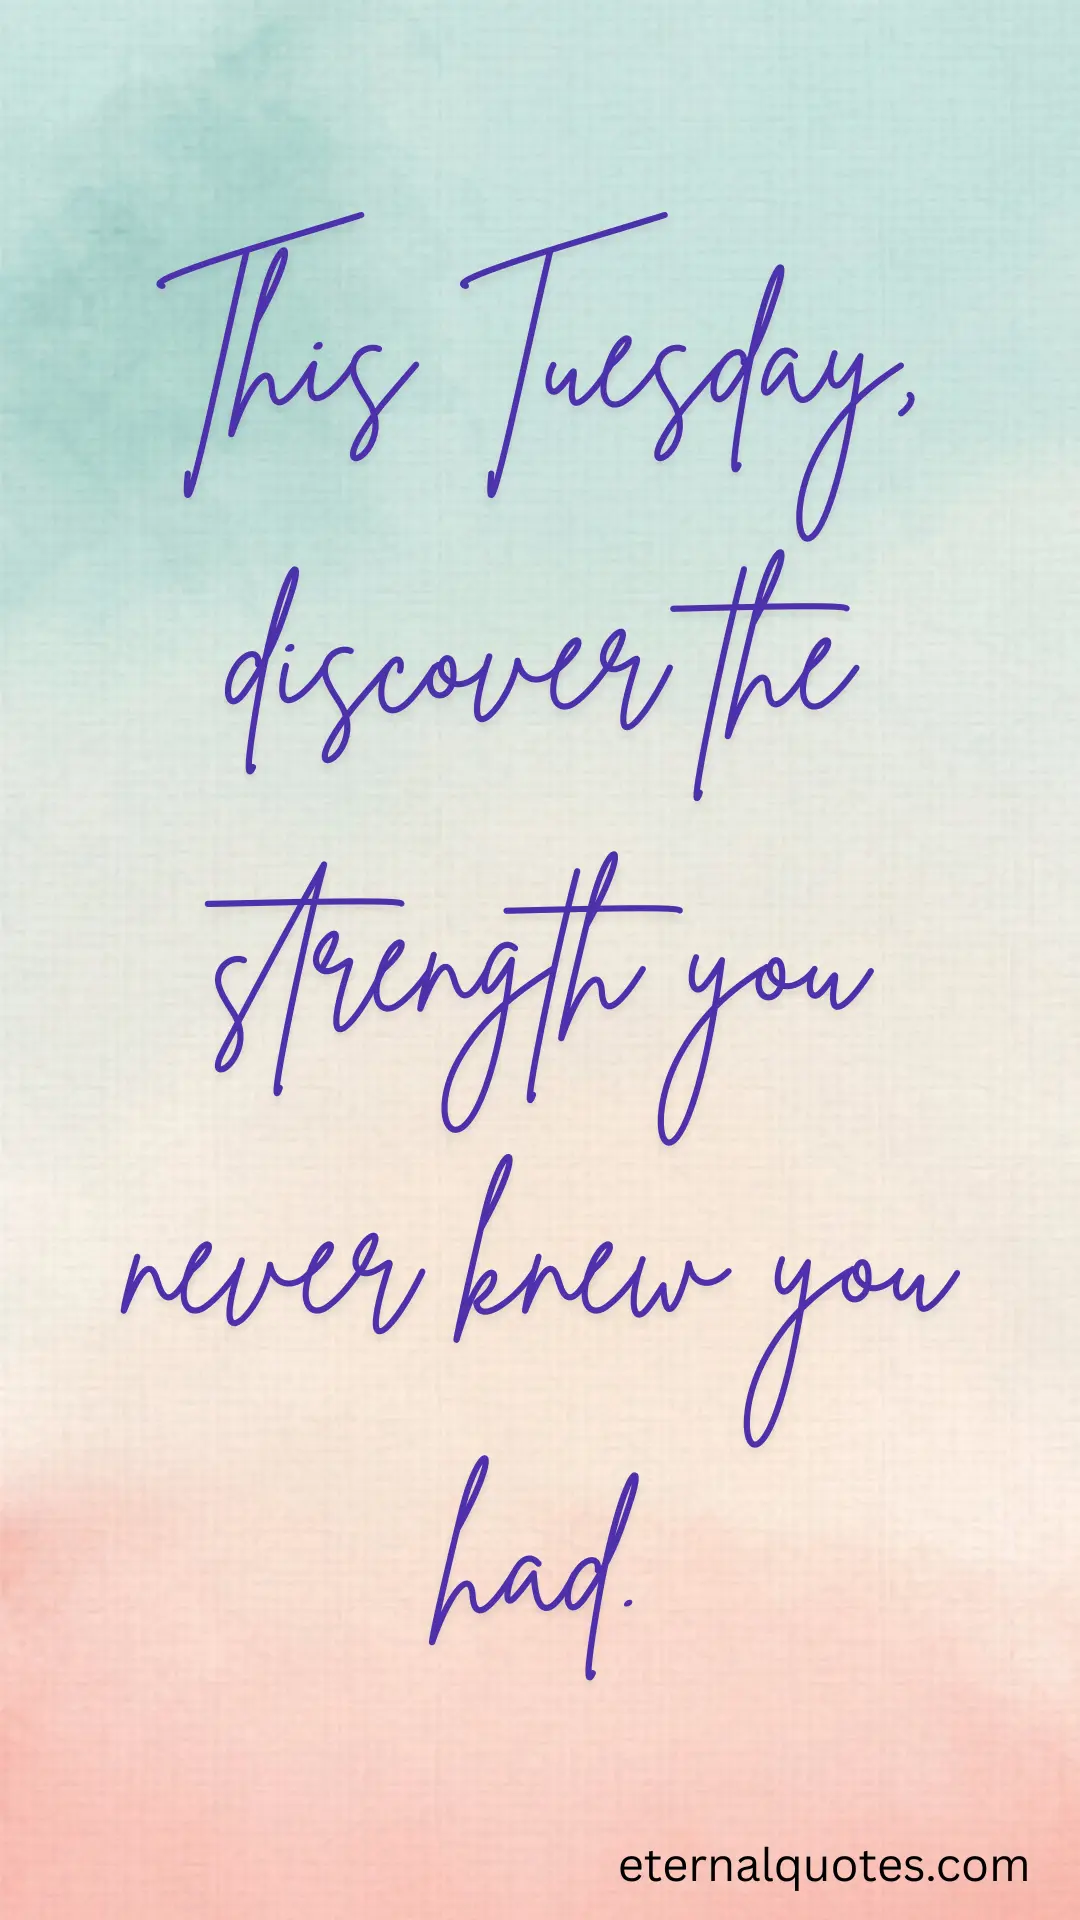 This Tuesday,
discover the
strength you
never knew you
had.
eternalquotes.com